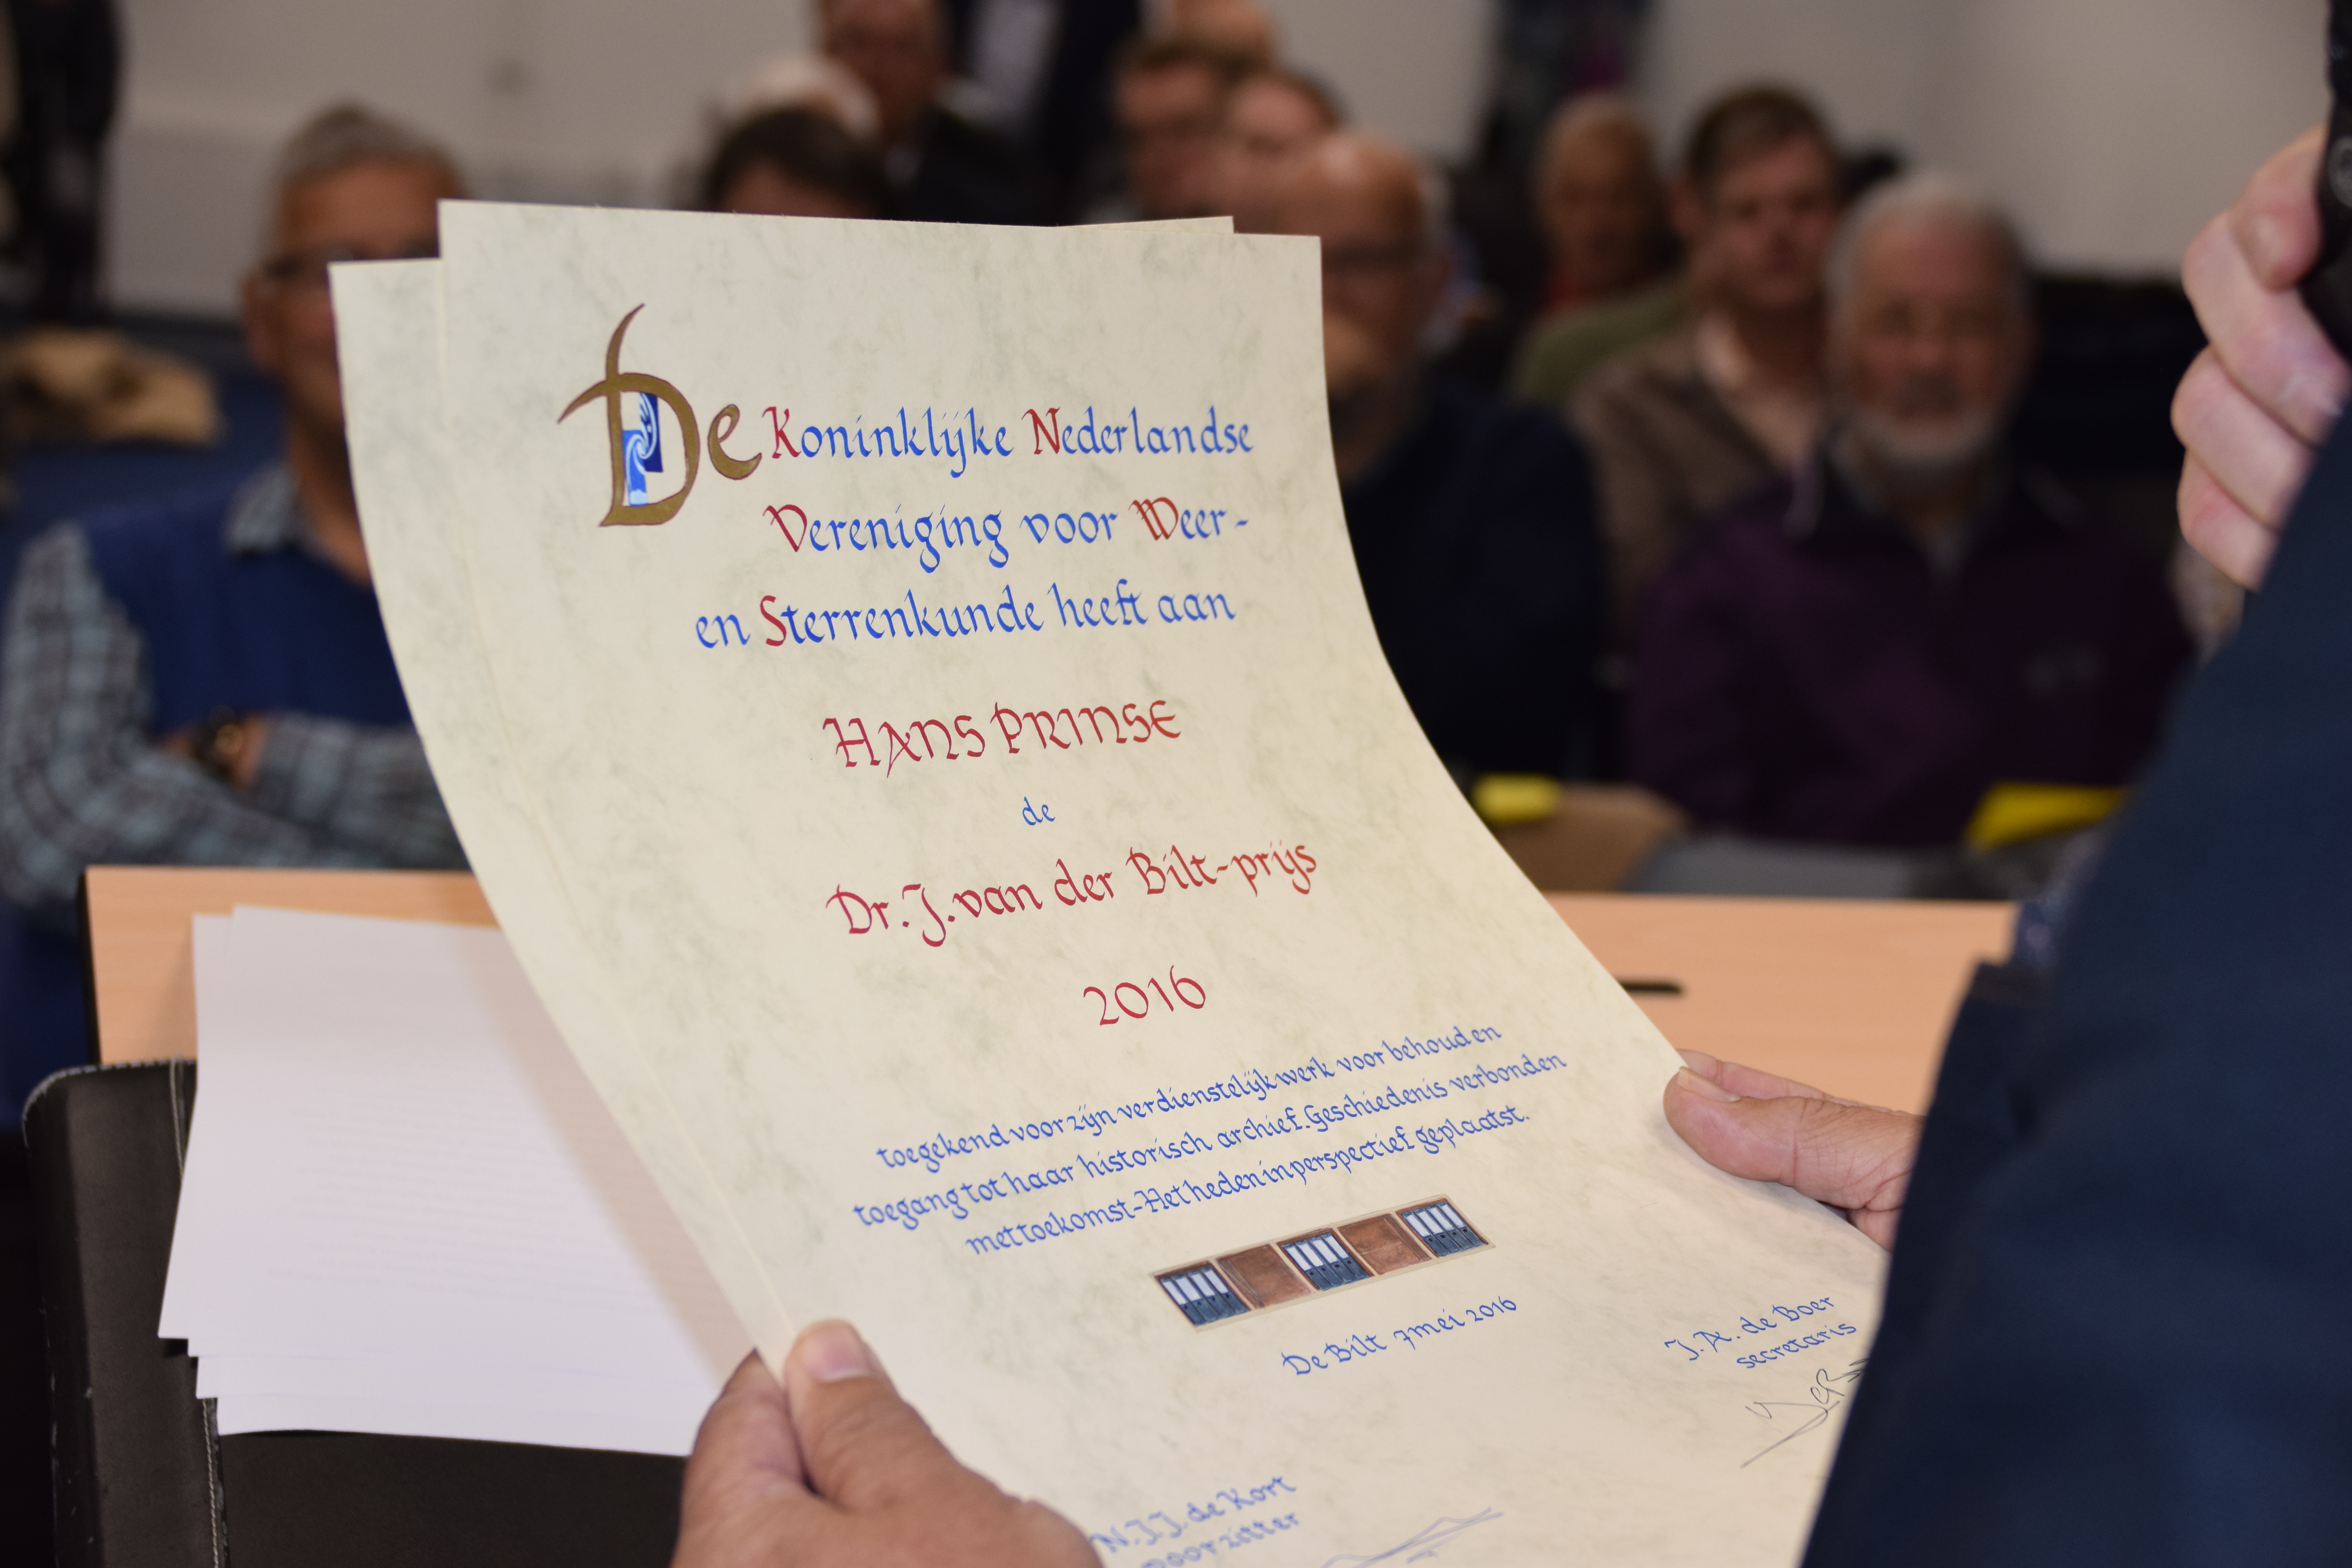 De Koninklijke Nederlandse
Vereniging voor Weer-
en Sterrenkunde heeft aan
HANS PRINSE
de
Dr. J. van der Bilt-prijs
2016
toegekend voor zijn verdienstelijk werk voor behoud en
toegang tot haar historisch archief. Geschiedenis verbonden
met toekomst-Het heden in perspectief geplaatst.
De Bilt 7 mei 2016
J.A. de Boer
secretaris
N.J.J. de Kort
voorzitter